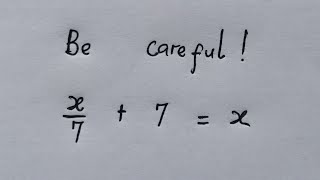 Be careful!
x/7 + 7 = x